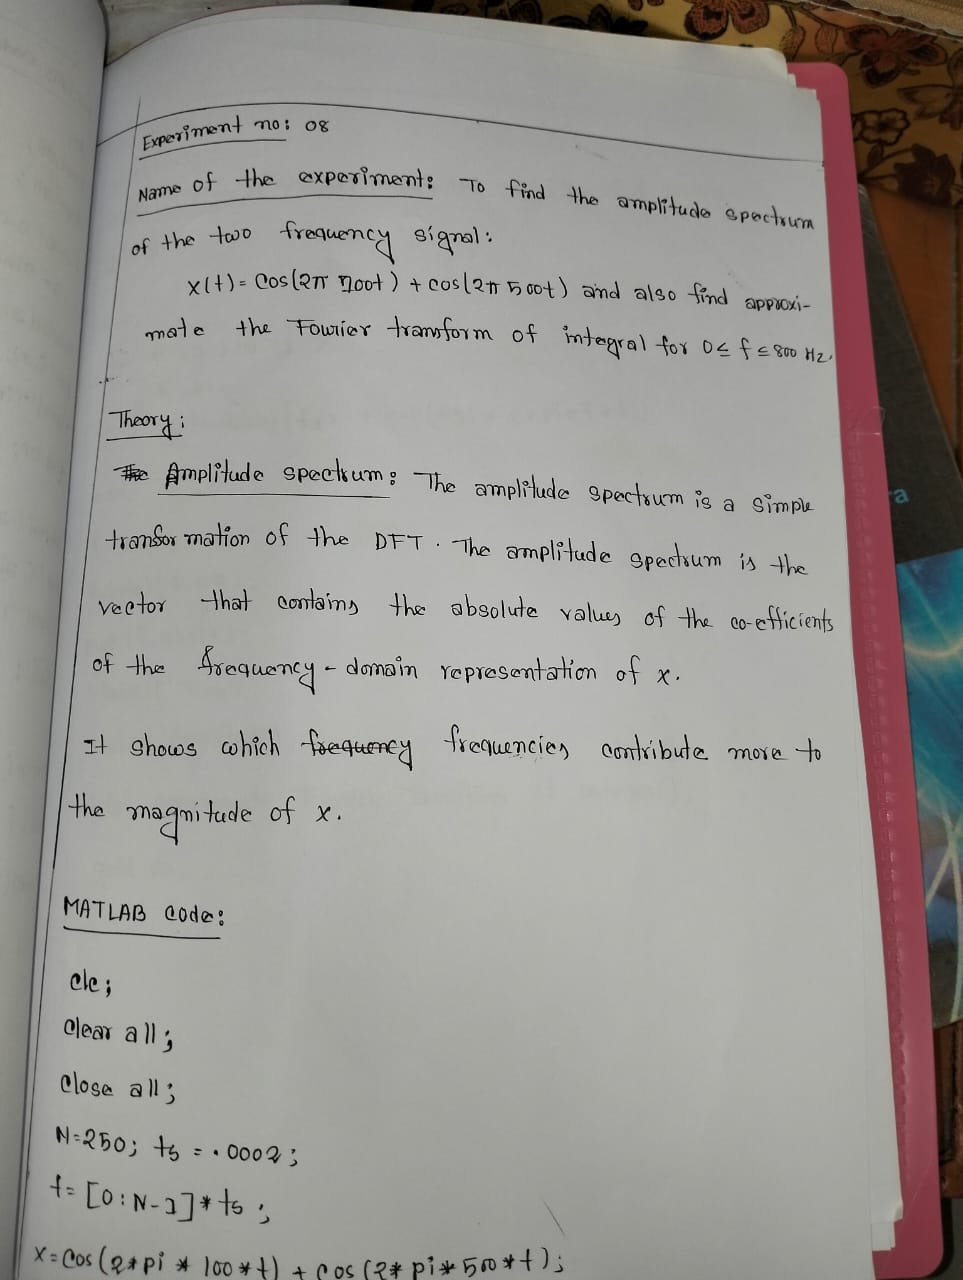 Experiment no: 08
Name of the experiment: To find the amplitude spectrum
of the two frequency signal:
x(t) = Cos(2π 100t) + cos(2π 500t) and also find approxi-
mate the Fourier transform of integral for 0 ≤ f ≤ 800 Hz.
Theory:
The Amplitude spectrum: The amplitude spectrum is a simple
transformation of the DFT. The amplitude spectrum is the
vector that contains the absolute values of the co-efficients
of the frequency-domain representation of x.
It shows which frequency frequencies contribute more to
the magnitude of x.
MATLAB code:
clc;
clear all;
close all;
N=250; ts = .0002;
t= [0:N-1]* ts;
x = cos(2*pi * 100*t) + cos(2*pi*500*t);
a